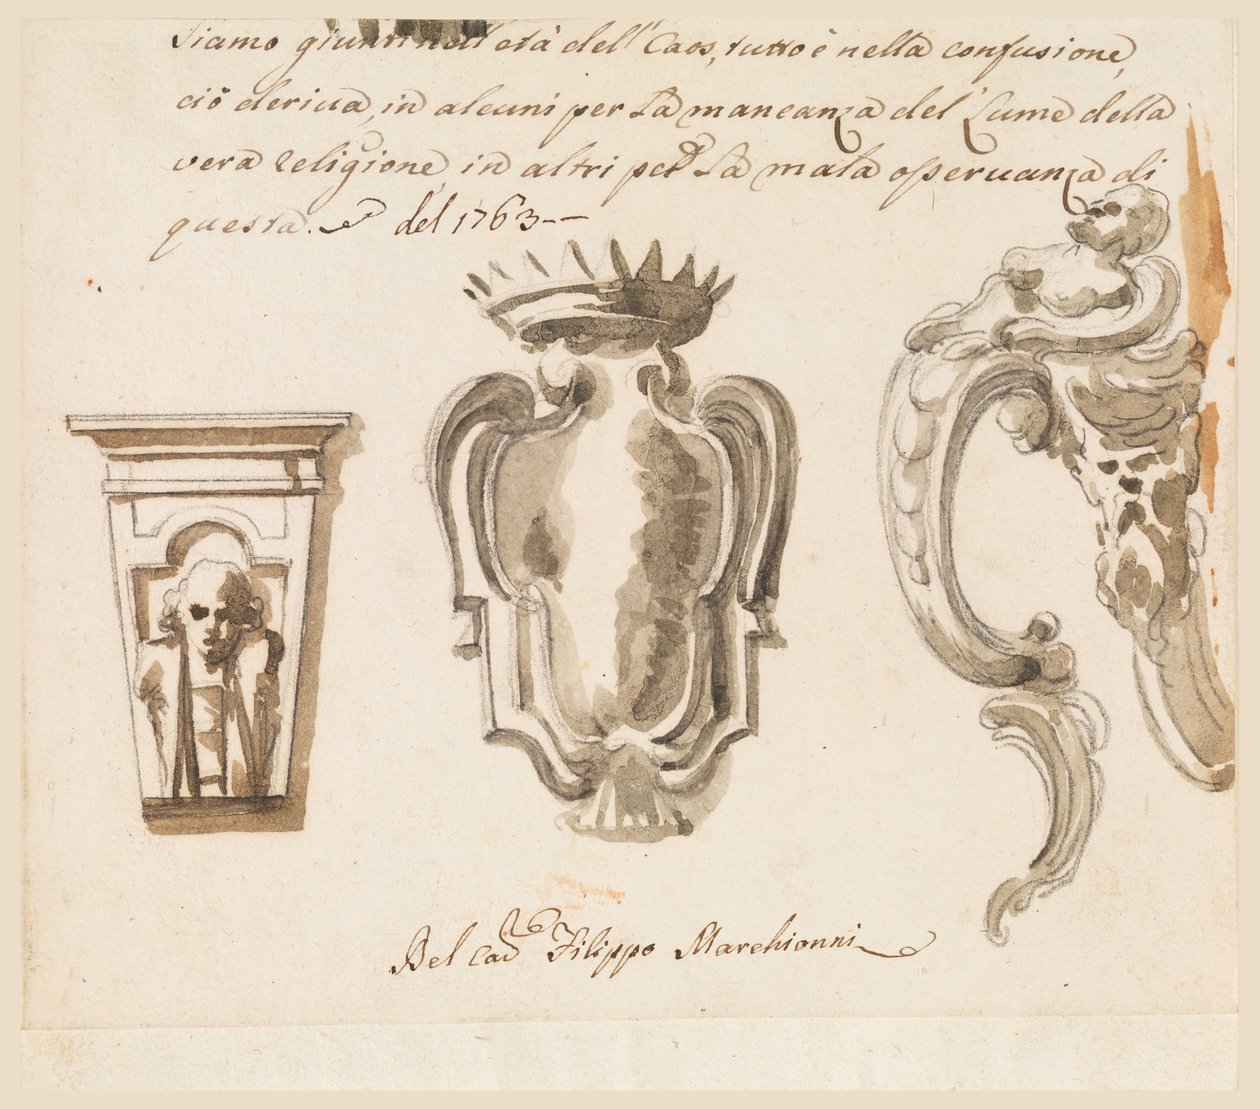 Siamo giunti nell'età dell'Caos, tutto è nella confusione,
ciò deriua, in alcuni per la mancanza del' Lume della
vera religione, in altri per la mala osseruanza di
questa. del 1763--
Del Cav Filippo Marchionni